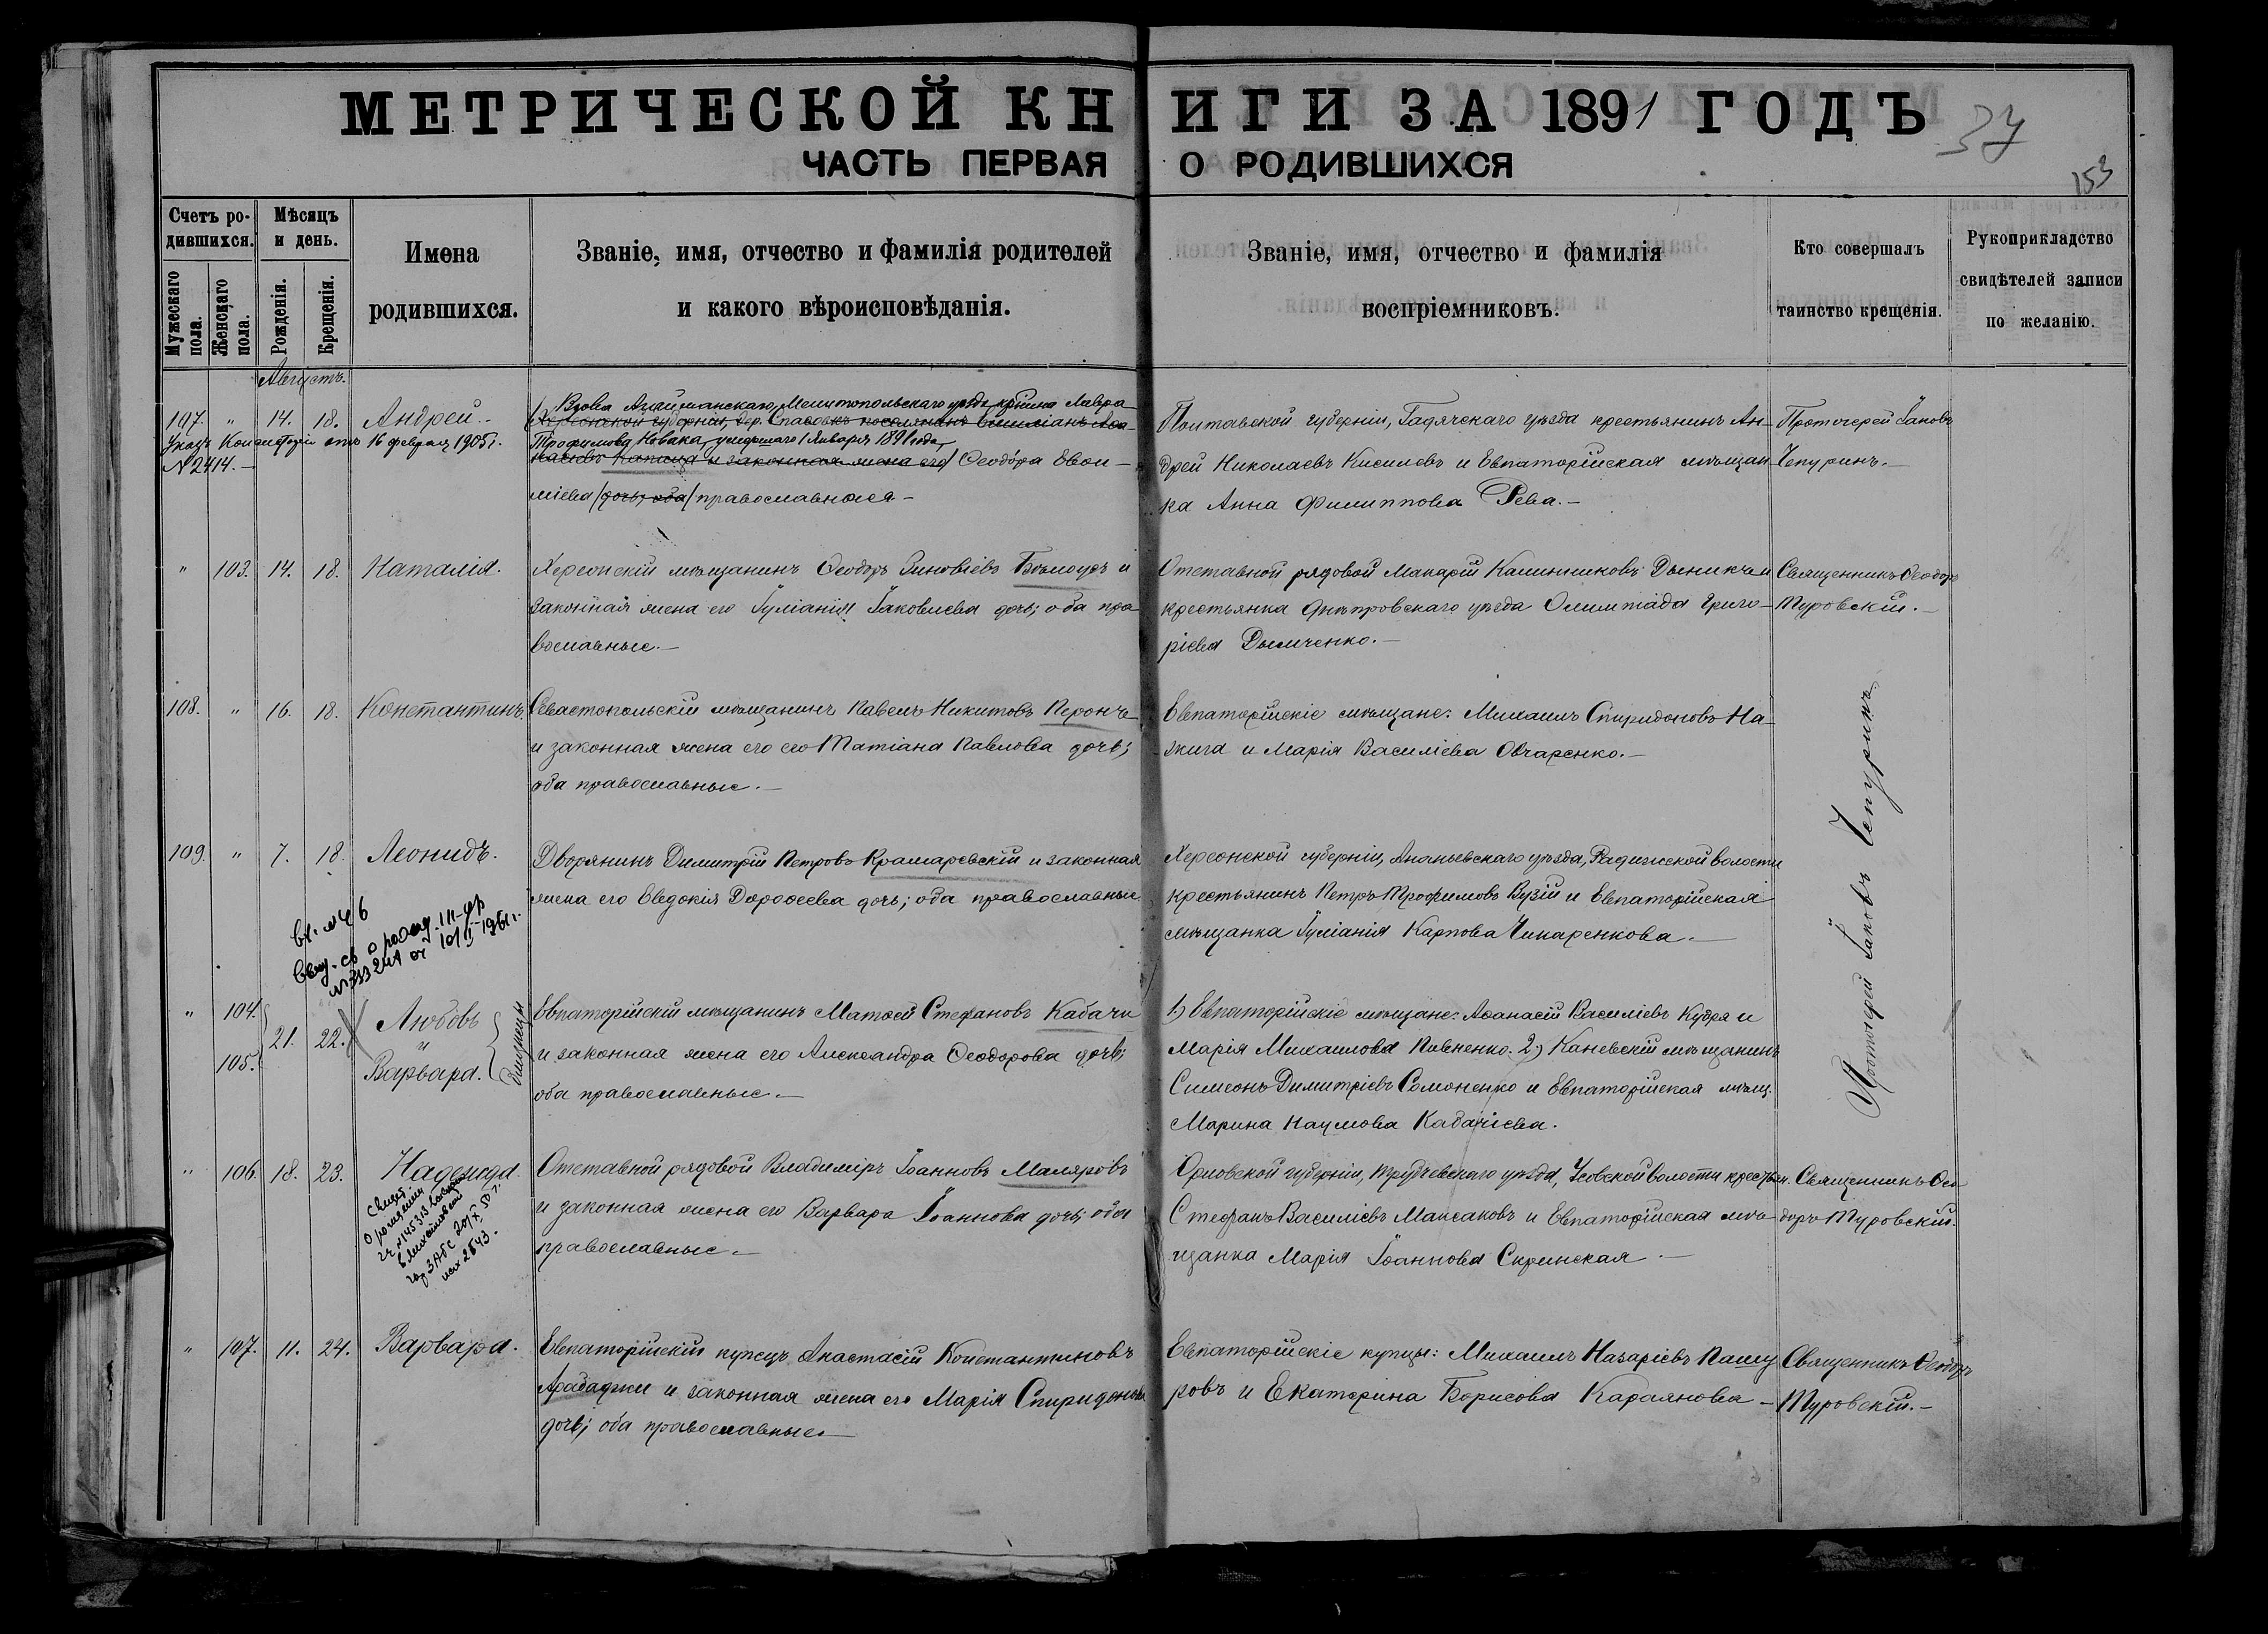 МЕТРИЧЕСКОЙ КНИГИ ЗА 1891 ГОДЪ
37
ЧАСТЬ ПЕРВАЯ О РОДИВШИХСЯ
153
Счетъ ро-
дившихся.
Мужескаго пола.
Женскаго пола.
Мѣсяцъ
и день.
Рожденія.
Крещенія.
Имена
родившихся.
Званіе, имя, отчество и фамилія родителей
и какого вѣроисповѣданія.
Званіе, имя, отчество и фамилія
воспріемниковъ.
Кто совершалъ
таинство крещенія.
Рукоприкладство
свидѣтелей записи
по желанію.
Августъ.
107. " 14. 18. Андрей.
Указъ Консисторіи отъ 16 февраля 1905 г.
№ 2414.
Вдова Мелитопольскаго уѣзда Лавра
Херсонской губерніи, дер. Спасовкъ поселянинъ
Трофимова Новака, умершаго 1 Января 1891 года,
и законная жена его Ѳеодора Евѳи-
міева дочь; оба православныя
Полтавской губерніи, Гадячскаго уѣзда крестьянинъ Ан-
дрей Николаевъ Киселевъ и Евпаторійская мѣщан-
ка Анна Филиппова Рева.
Протоіерей Іаковъ
Чепуринъ.
" 103. 14. 18. Наталія.
Херсонскій мѣщанинъ Ѳеодоръ Зиновіевъ Бѣлоусъ и
законная жена его Іуліанія Іаковлева дочь; оба пра-
вославные.
Отставной рядовой Макарій Калинниковъ и
крестьянка Днѣпровскаго уѣзда Олимпіада Григо-
ріева Дымченко.
Священникъ Ѳеодоръ
Туровскій.
108. " 16. 18. Константинъ.
Севастопольскій мѣщанинъ Павелъ Никитовъ
и законная жена его его Татіана Павлова дочь;
оба православные.
Евпаторійскіе мѣщане: Михаилъ Спиридоновъ На-
жига и Марія Василіева Овчаренко.
109. " 7. 18. Леонидъ.
Дворянинъ Димитрій Петровъ Крамаревскій и законная
жена его Евдокія Дороѳеева дочь; оба православные
Херсонской губерніи, Ананьевскаго уѣзда, волости
крестьянинъ Петръ Трофимовъ Вузій и Евпаторійская
мѣщанка Іуліанія Карпова Чипаренкова.
Протоіерей Іаковъ Чепуринъ
" 104.
105. 21. 22. Любовь
и
Варвара. близнецы
Евпаторійскій мѣщанинъ Матѳей Стефановъ Кабачи
и законная жена его Александра Ѳеодорова дочь;
оба православные.
1) Евпаторійскіе мѣщане: Аѳанасій Василіевъ Кудря и
Марія Михаилова Пивненко. 2) Каневскій мѣщанинъ
Симеонъ Димитріевъ Соломоненко и Евпаторійская мѣщ.
Марина Наумова Кабачіева.
" 106. 18. 23. Надежда.
Отставной рядовой Владиміръ Іоанновъ Маляровъ
и законная жена его Варвара Іоаннова дочь; оба
православные.
Орловской губерніи, Трубчевскаго уѣзда, Усовской волости крестьян.
Стефанъ Василіевъ Максаковъ и Евпаторійская мѣ-
щанка Марія Іоаннова Скринская
Священникъ Ѳео-
доръ Туровскій.
" 107. 11. 24. Варвара.
Евпаторійскій купецъ Анастасій Константиновъ
Арабаджи и законная жена его Марія Спиридонова
дочь; оба православные.
Евпаторійскіе купцы: Михаилъ Назаріевъ Пашу-
ровъ и Екатерина Борисова Караянова
Священникъ Ѳеодоръ
Туровскій.